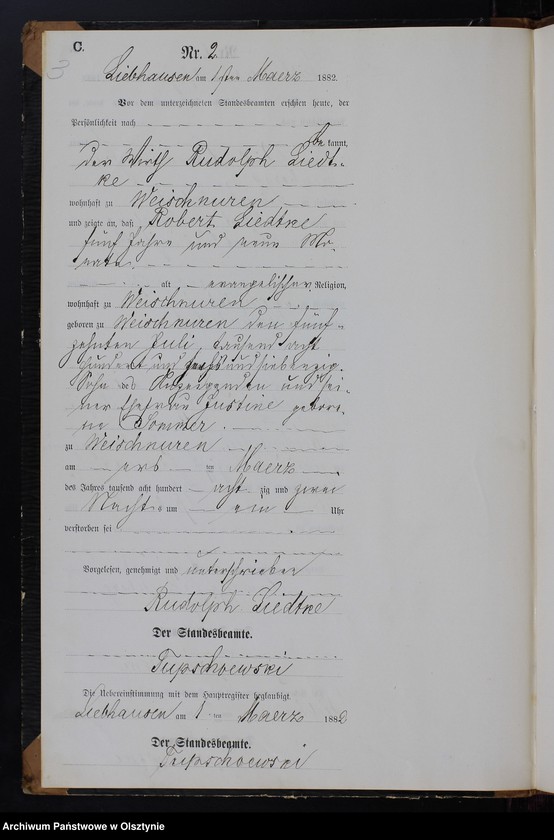 C.
Nr. 2
3
Liebhausen am 1sten Maerz 1882.
Vor dem unterzeichneten Standesbeamten erschien heute, der
Persönlichkeit nach
be kannt,
der Wirth Rudolph Liedt-
ke
wohnhaft zu Weischnuren
und zeigte an, daß Robert Liedtke
fünf Jahre und neun Mo-
nate
alt evangelischer Religion,
wohnhaft zu Weischnuren
geboren zu Weischnuren den fünf-
zehnten Juli, tausend acht
hundert und sechsundsiebenzig.
Sohn des Anzeigenden und sei-
ner Ehefrau Justine gebore-
ne Sommer.
zu Weischnuren
am ers ten Maerz
des Jahres tausend acht hundert acht zig und zwei
Nachts um ein Uhr
verstorben sei
Vorgelesen, genehmigt und unterschrieben
Rudolph Liedtke
Der Standesbeamte.
Die Uebereinstimmung mit dem Hauptregister beglaubigt
Liebhausen am 1 ten Maerz 1882
Der Standesbeamte.
Archiwum Państwowe w Olsztynie